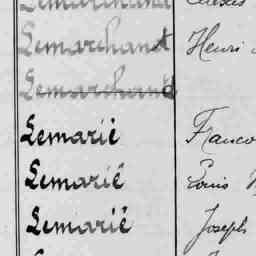 Lemarchand
Lemarchand Henri
Lemarchand
Lemarië Franco
Lemarië Louis
Lemarië Joseph